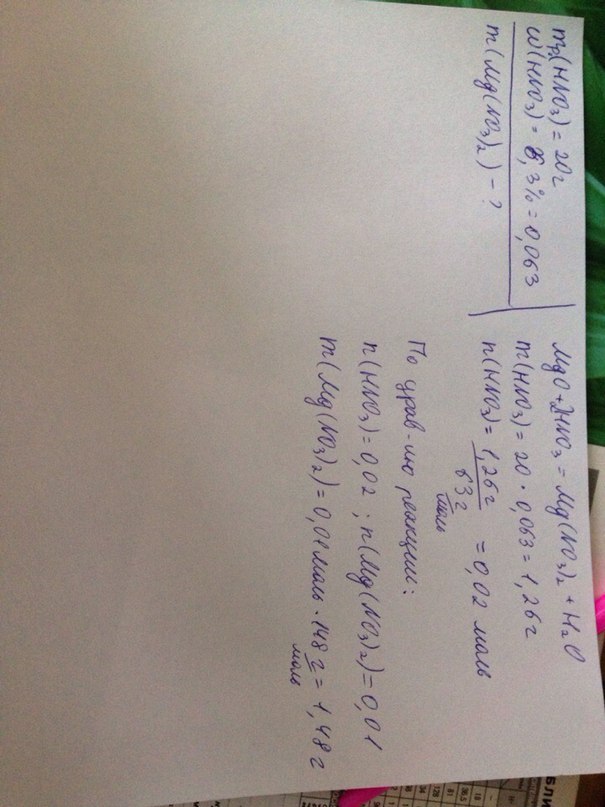 mр(HNO₃) = 20г
w(HNO₃) = 6,3% = 0,063
m(Mg(NO₃)₂) - ?
MgO + 2HNO₃ = Mg(NO₃)₂ + H₂O
m(HNO₃) = 20 · 0,063 = 1,26г
n(HNO₃) = 1,26г / 63 г/моль = 0,02 моль
По урав-ию реакции:
n(HNO₃) = 0,02 ; n(Mg(NO₃)₂) = 0,01
m(Mg(NO₃)₂) = 0,01моль · 148 г/моль = 1,48 г
БЛИ